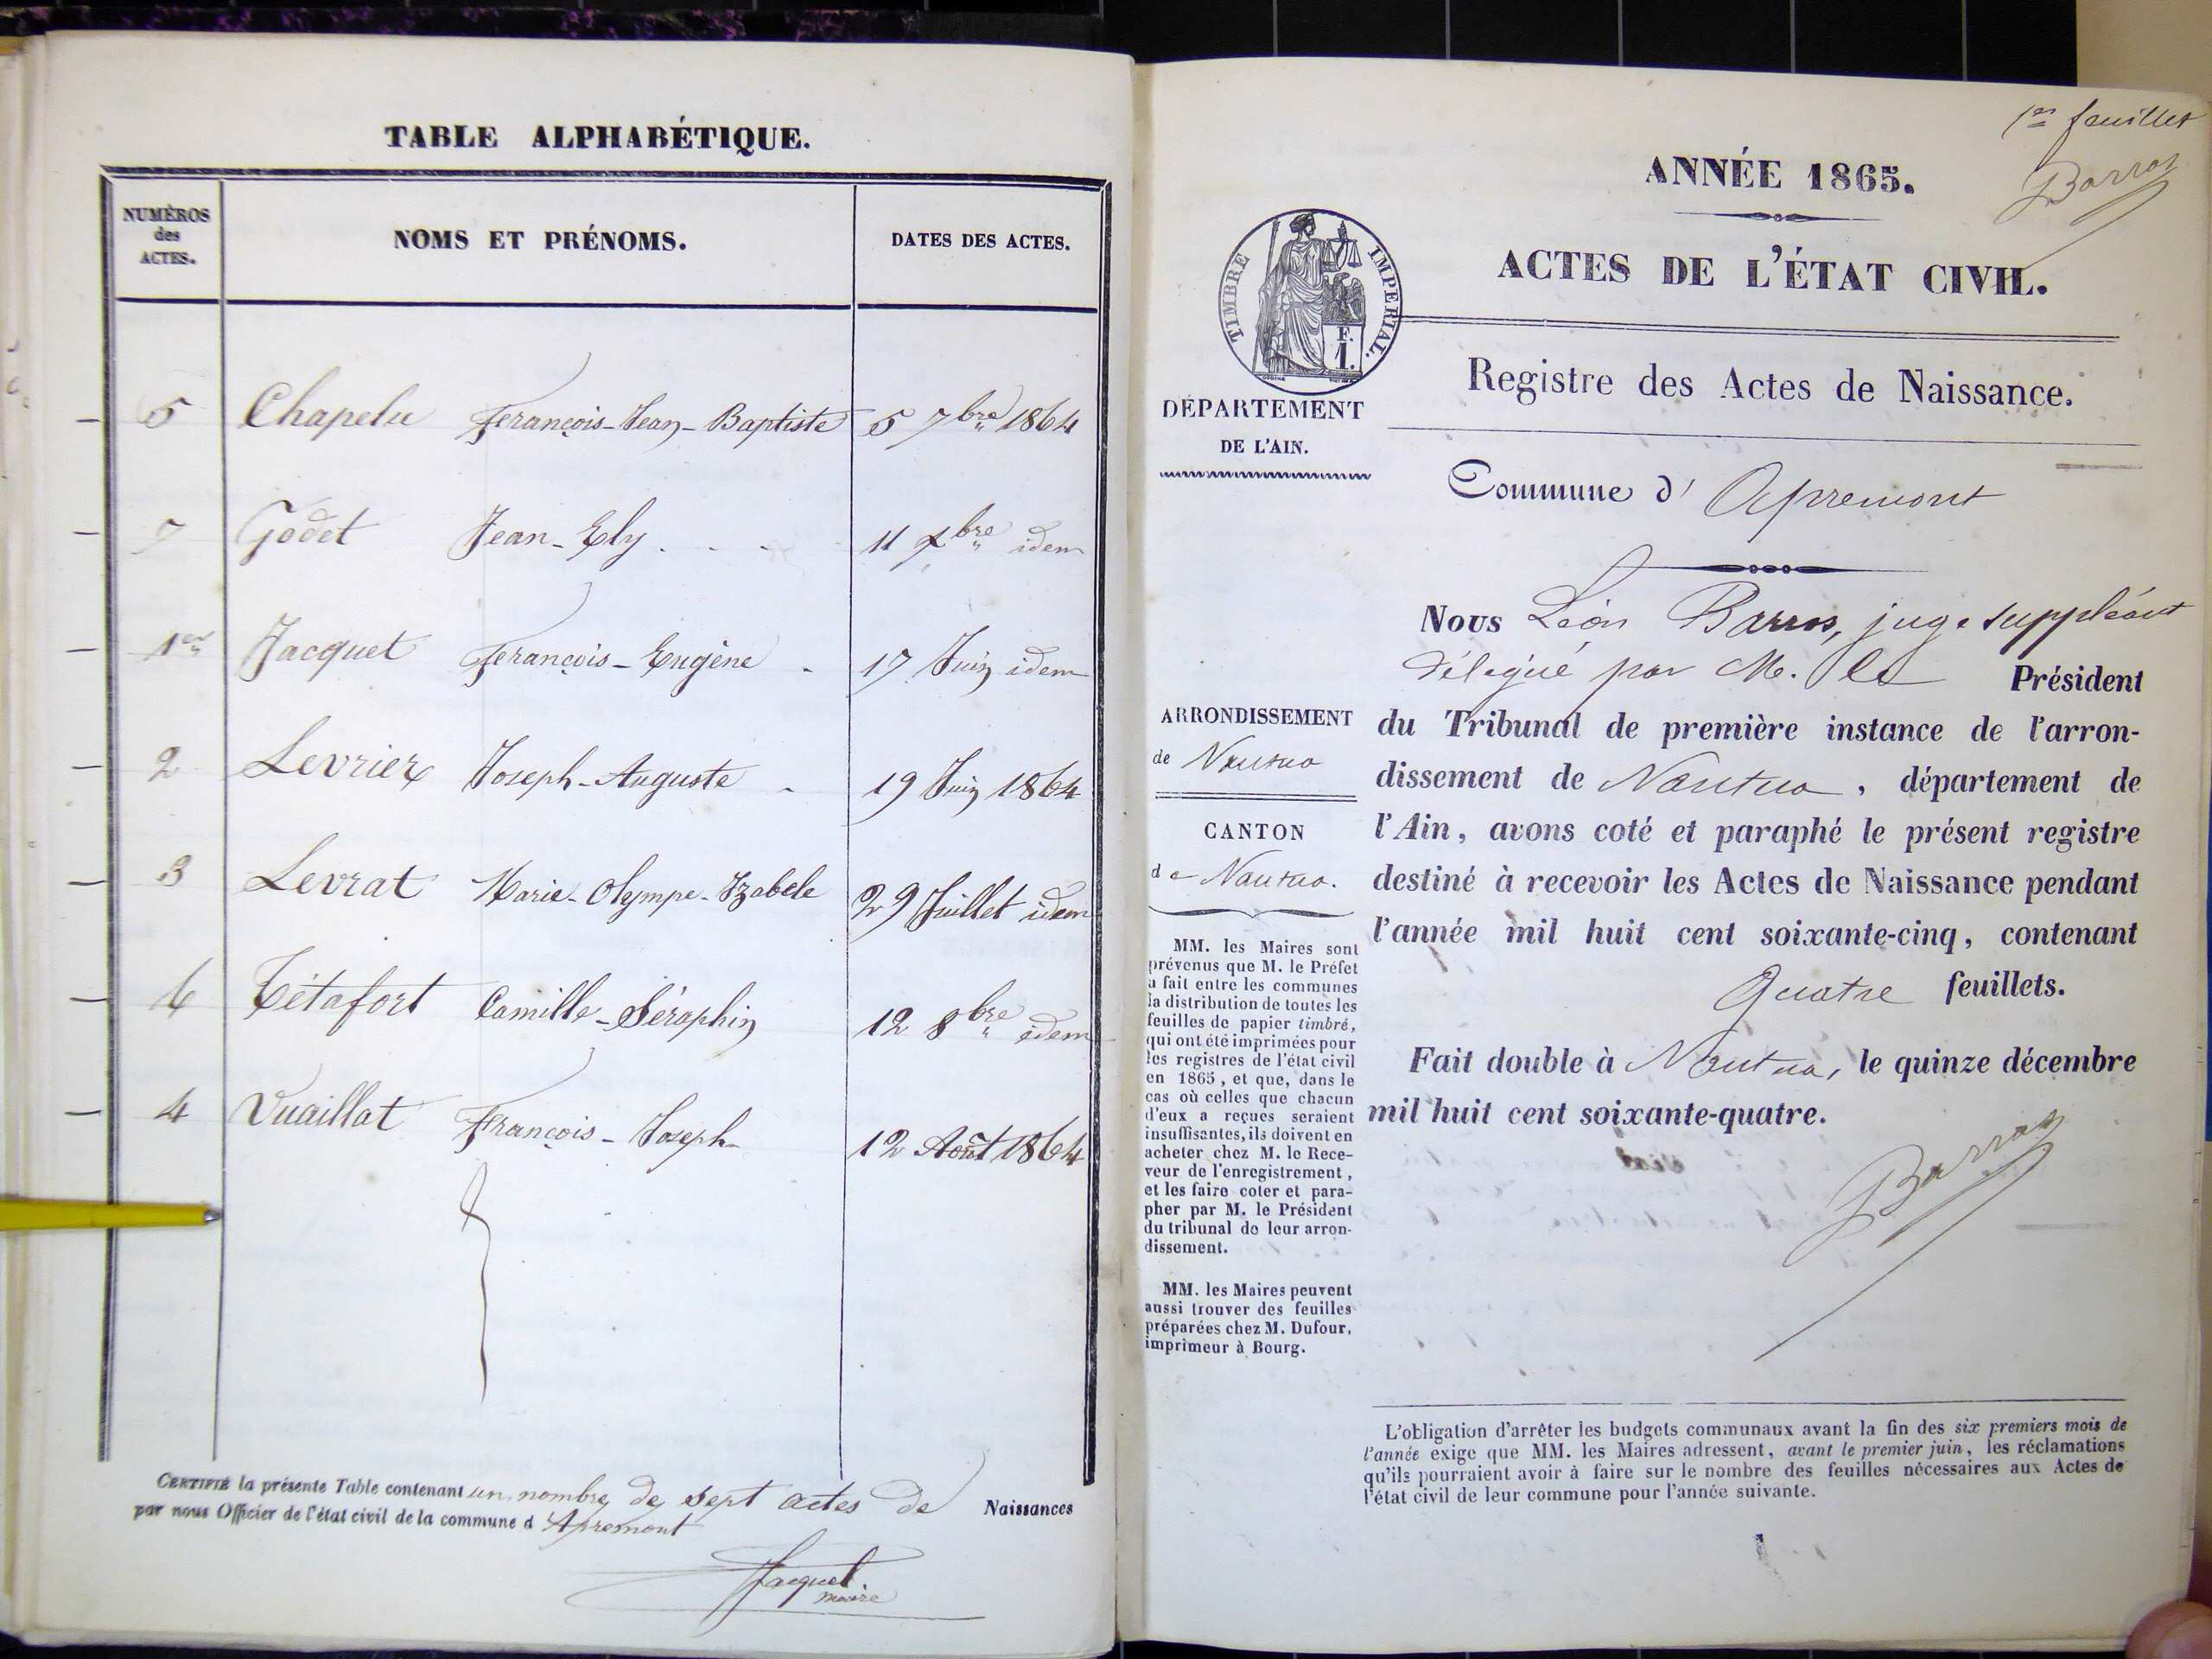 TABLE ALPHABÉTIQUE.
NUMÉROS des ACTES. NOMS ET PRÉNOMS. DATES DES ACTES.
5 Chapelu François-Jean-Baptiste 5 7bre 1864
7 Godet Jean-Ely . . . 11 Xbre idem
1er Jacquet François-Eugène 17 Juin idem
2 Levrier Joseph-Auguste 19 Juin 1864
3 Levrat Marie-Olympe-Izabele 29 Juillet idem
6 Tétafort Camille-Séraphin 12 8bre idem
4 Vuaillat François-Joseph 12 Août 1864
CERTIFIÉ la présente Table contenant un nombre de sept actes de Naissances
par nous Officier de l'état civil de la commune d'Apremont
Jacquet
maire
1er feuillet
Barros
ANNÉE 1865.
ACTES DE L'ÉTAT CIVIL.
TIMBRE IMPERIAL.
F.
1.
Registre des Actes de Naissance.
DÉPARTEMENT
DE L'AIN.
Commune d' Apremont
Nous Léon Barros, juge suppléant
délégué par M. le Président
du Tribunal de première instance de l'arron-
dissement de Nantua, département de
l'Ain, avons coté et paraphé le présent registre
destiné à recevoir les Actes de Naissance pendant
l'année mil huit cent soixante-cinq, contenant
Quatre feuillets.
Fait double à Nantua, le quinze décembre
mil huit cent soixante-quatre.
Barros
ARRONDISSEMENT
de Nantua
CANTON
de Nantua.
MM. les Maires sont
prévenus que M. le Préfet
a fait entre les communes
la distribution de toutes les
feuilles de papier timbré,
qui ont été imprimées pour
les registres de l'état civil
en 1865, et que, dans le
cas où celles que chacun
d'eux a reçues seraient
insuffisantes, ils doivent en
acheter chez M. le Rece-
veur de l'enregistrement,
et les faire coter et para-
pher par M. le Président
du tribunal de leur arron-
dissement.
MM. les Maires peuvent
aussi trouver des feuilles
préparées chez M. Dufour,
imprimeur à Bourg.
L'obligation d'arrêter les budgets communaux avant la fin des six premiers mois de
l'année exige que MM. les Maires adressent, avant le premier juin, les réclamations
qu'ils pourraient avoir à faire sur le nombre des feuilles nécessaires aux Actes de
l'état civil de leur commune pour l'année suivante.